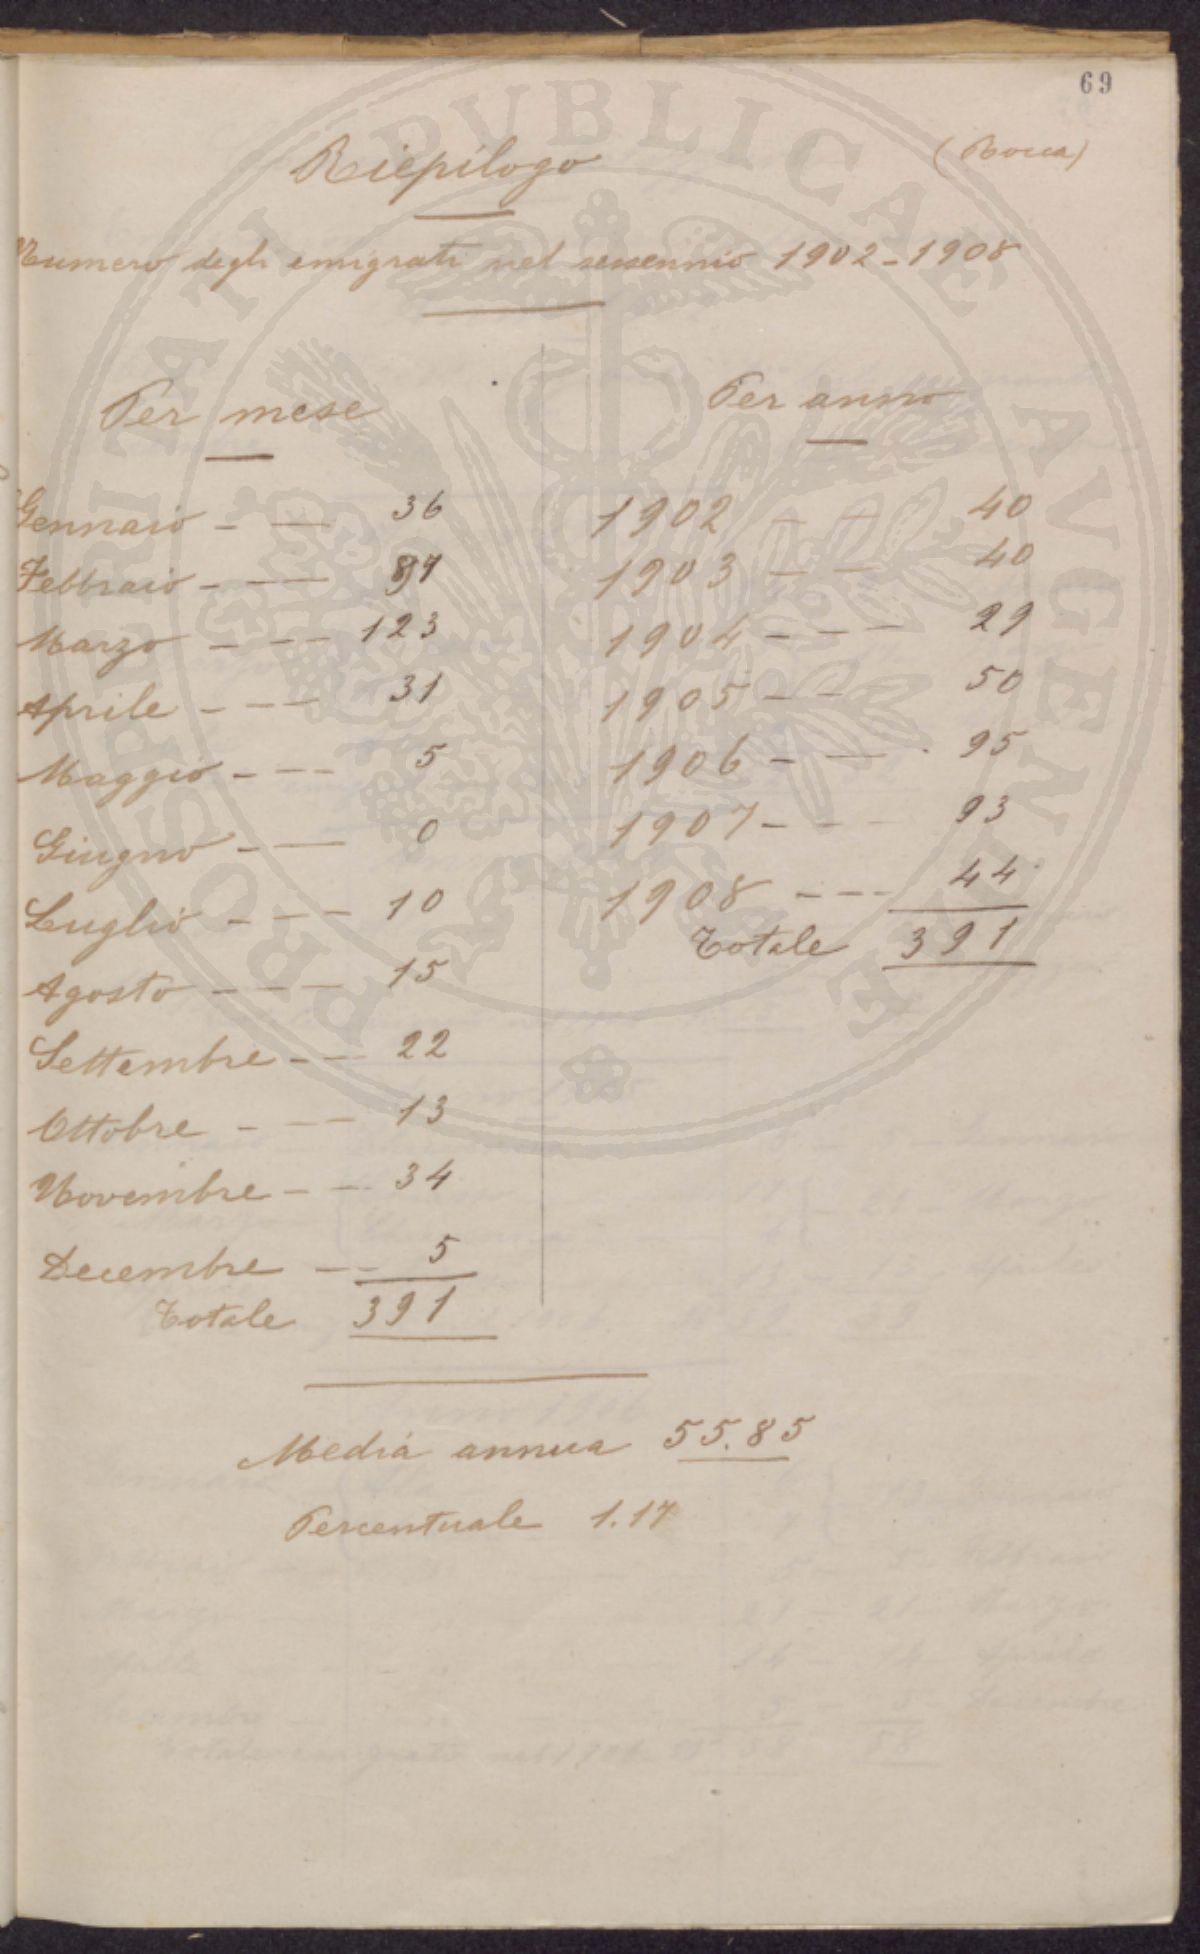 69
(Rocca)
Riepilogo
Numero degli emigrati nel sessennio 1902-1908
Per mese
Gennaio - — — 36
Febbraio - — — 97
Marzo - — — 123
Aprile - — — 31
Maggio - — — 5
Giugno - — 0
Luglio - — — 10
Agosto - — — 15
Settembre - — 22
Ottobre - — — 13
Novembre - — 34
Decembre — — 5
Totale 391
Per anno
1902 — — 40
1903 — — 40
1904 - — — 29
1905 - — — 50
1906 - — — 95
1907 - — — 93
1908 - — — 44
Totale 391
Media annua 55.85
Percentuale 1.17
PROSPERITATI PVBLICAE AVGENDAE